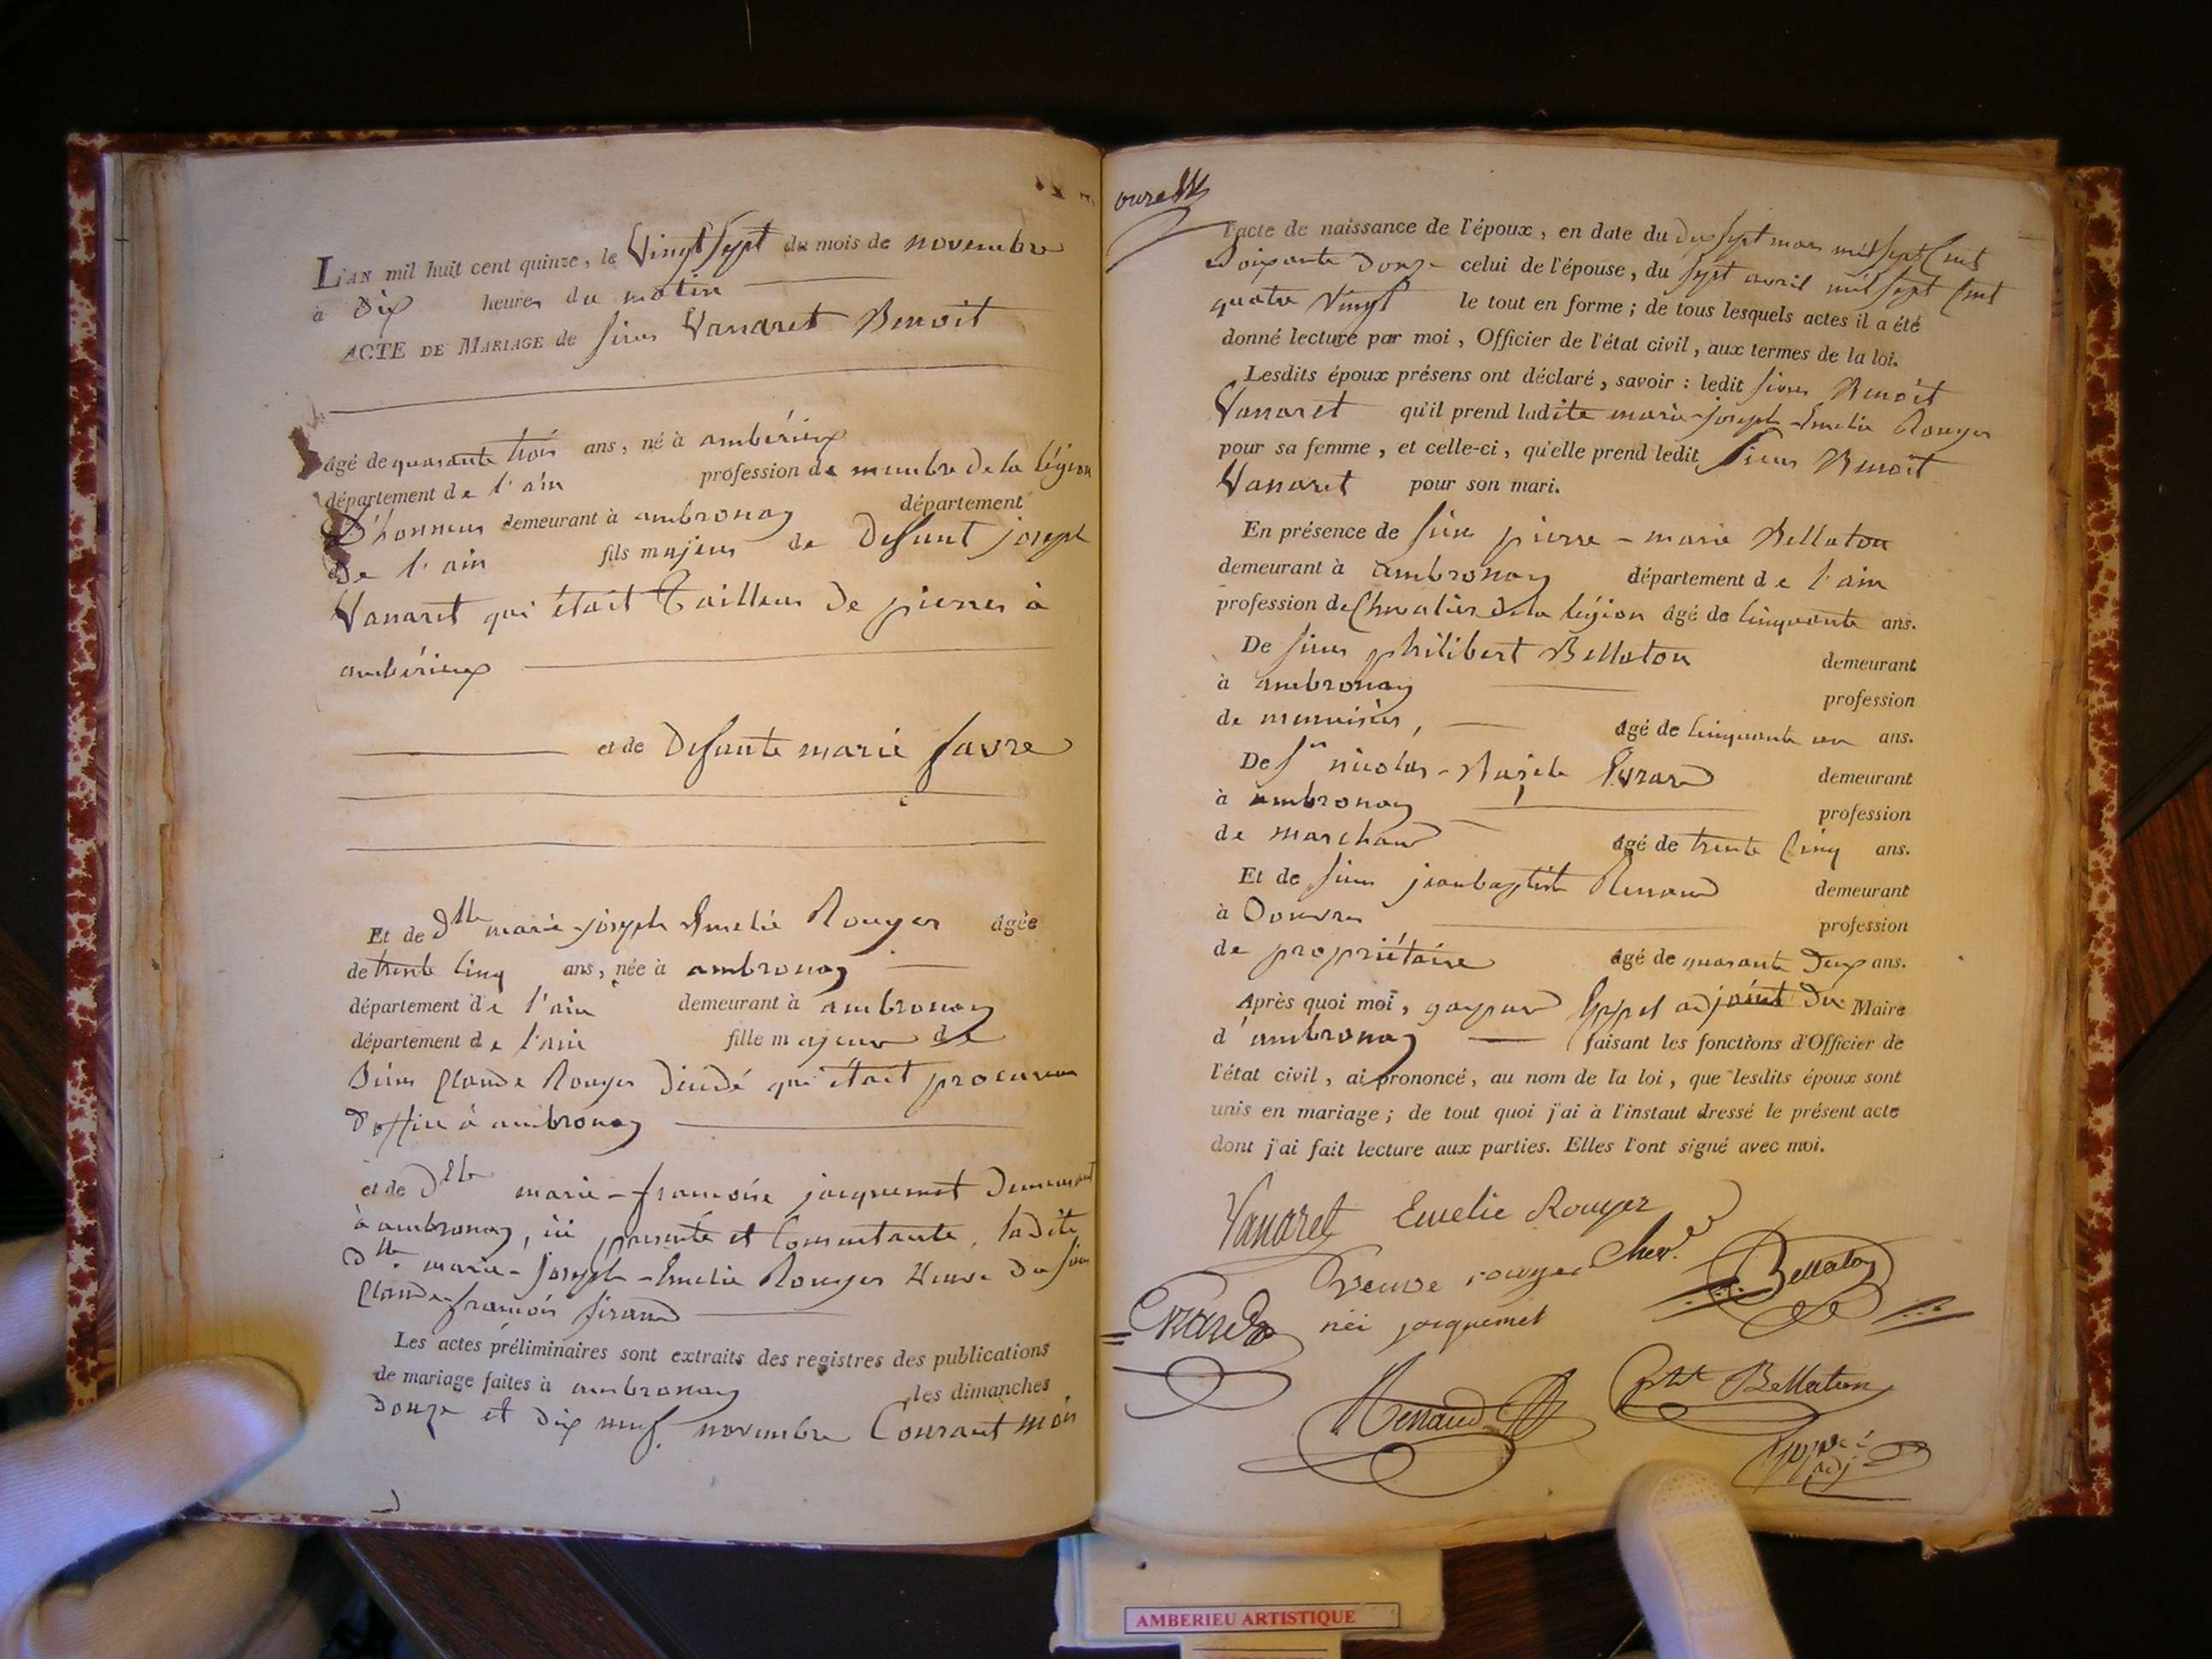 L'AN mil huit cent quinze, le Vingt Sept du mois de novembre
à dix heures du matin
ACTE DE MARIAGE de sieur Vanaret Benoit
âgé de quarante trois ans, né à ambérieux
département de l'ain profession de membre de la légion
D'honneur demeurant à ambronay département
de l'ain fils majeur de defunt joseph
Vanaret qui était Tailleur de pierres à
ambérieux
et de defunte marie favre
Et de dlle marie-joseph Emelie Rouyer âgée
de trente cinq ans, née à ambronay
département de l'ain demeurant à ambronay
département de l'ain fille majeure de
Sieur Claude Rouyer décédé qui était procureur
d'office à ambronay
et de dlle marie-francoise jacquemet demeurant
à ambronay, ici présente et consentante, ladite
dlle marie-Joseph-Emelie Rouyer Veuve du sieur
Claude-francois
Les actes préliminaires sont extraits des registres des publications
de mariage faites à ambronay les dimanches
douze et dix neuf novembre Courant mois
l'acte de naissance de l'époux, en date du dix sept mars mil sept Cent
Soixante douze celui de l'épouse, du sept avril mil sept Cent
quatre Vingt le tout en forme; de tous lesquels actes il a été
donné lecture par moi, Officier de l'état civil, aux termes de la loi.
Lesdits époux présens ont déclaré, savoir: ledit sieur Benoit
Vanaret qu'il prend ladite marie-joseph-Emelie Rouyer
pour sa femme, et celle-ci, qu'elle prend ledit Sieur Benoit
Vanaret pour son mari.
En présence de sieur pierre-marie Bellaton
demeurant à ambronay département de l'ain
profession de Chevalier de la légion âgé de Cinquante ans.
De sieur philibert Bellaton demeurant
à ambronay profession
de menuisier, âgé de Cinquante un ans.
De sr nicolas- Evrard demeurant
à ambronay profession
de marchand âgé de trente Cinq ans.
Et de sieur jeanbaptiste Renaud demeurant
à Douvres profession
de propriétaire âgé de quarante deux ans.
Après quoi moi, gaspard adjoint du Maire
d'ambronay faisant les fonctions d'Officier de
l'état civil, ai prononcé, au nom de la loi, que lesdits époux sont
unis en mariage; de tout quoi j'ai à l'instant dressé le présent acte
dont j'ai fait lecture aux parties. Elles l'ont signé avec moi.
Vanaret Emelie Rouyer
veuve rouyer Cher. Bellaton
Evrard née jacquemet
Renaud pht Bellaton
adj
AMBERIEU ARTISTIQUE